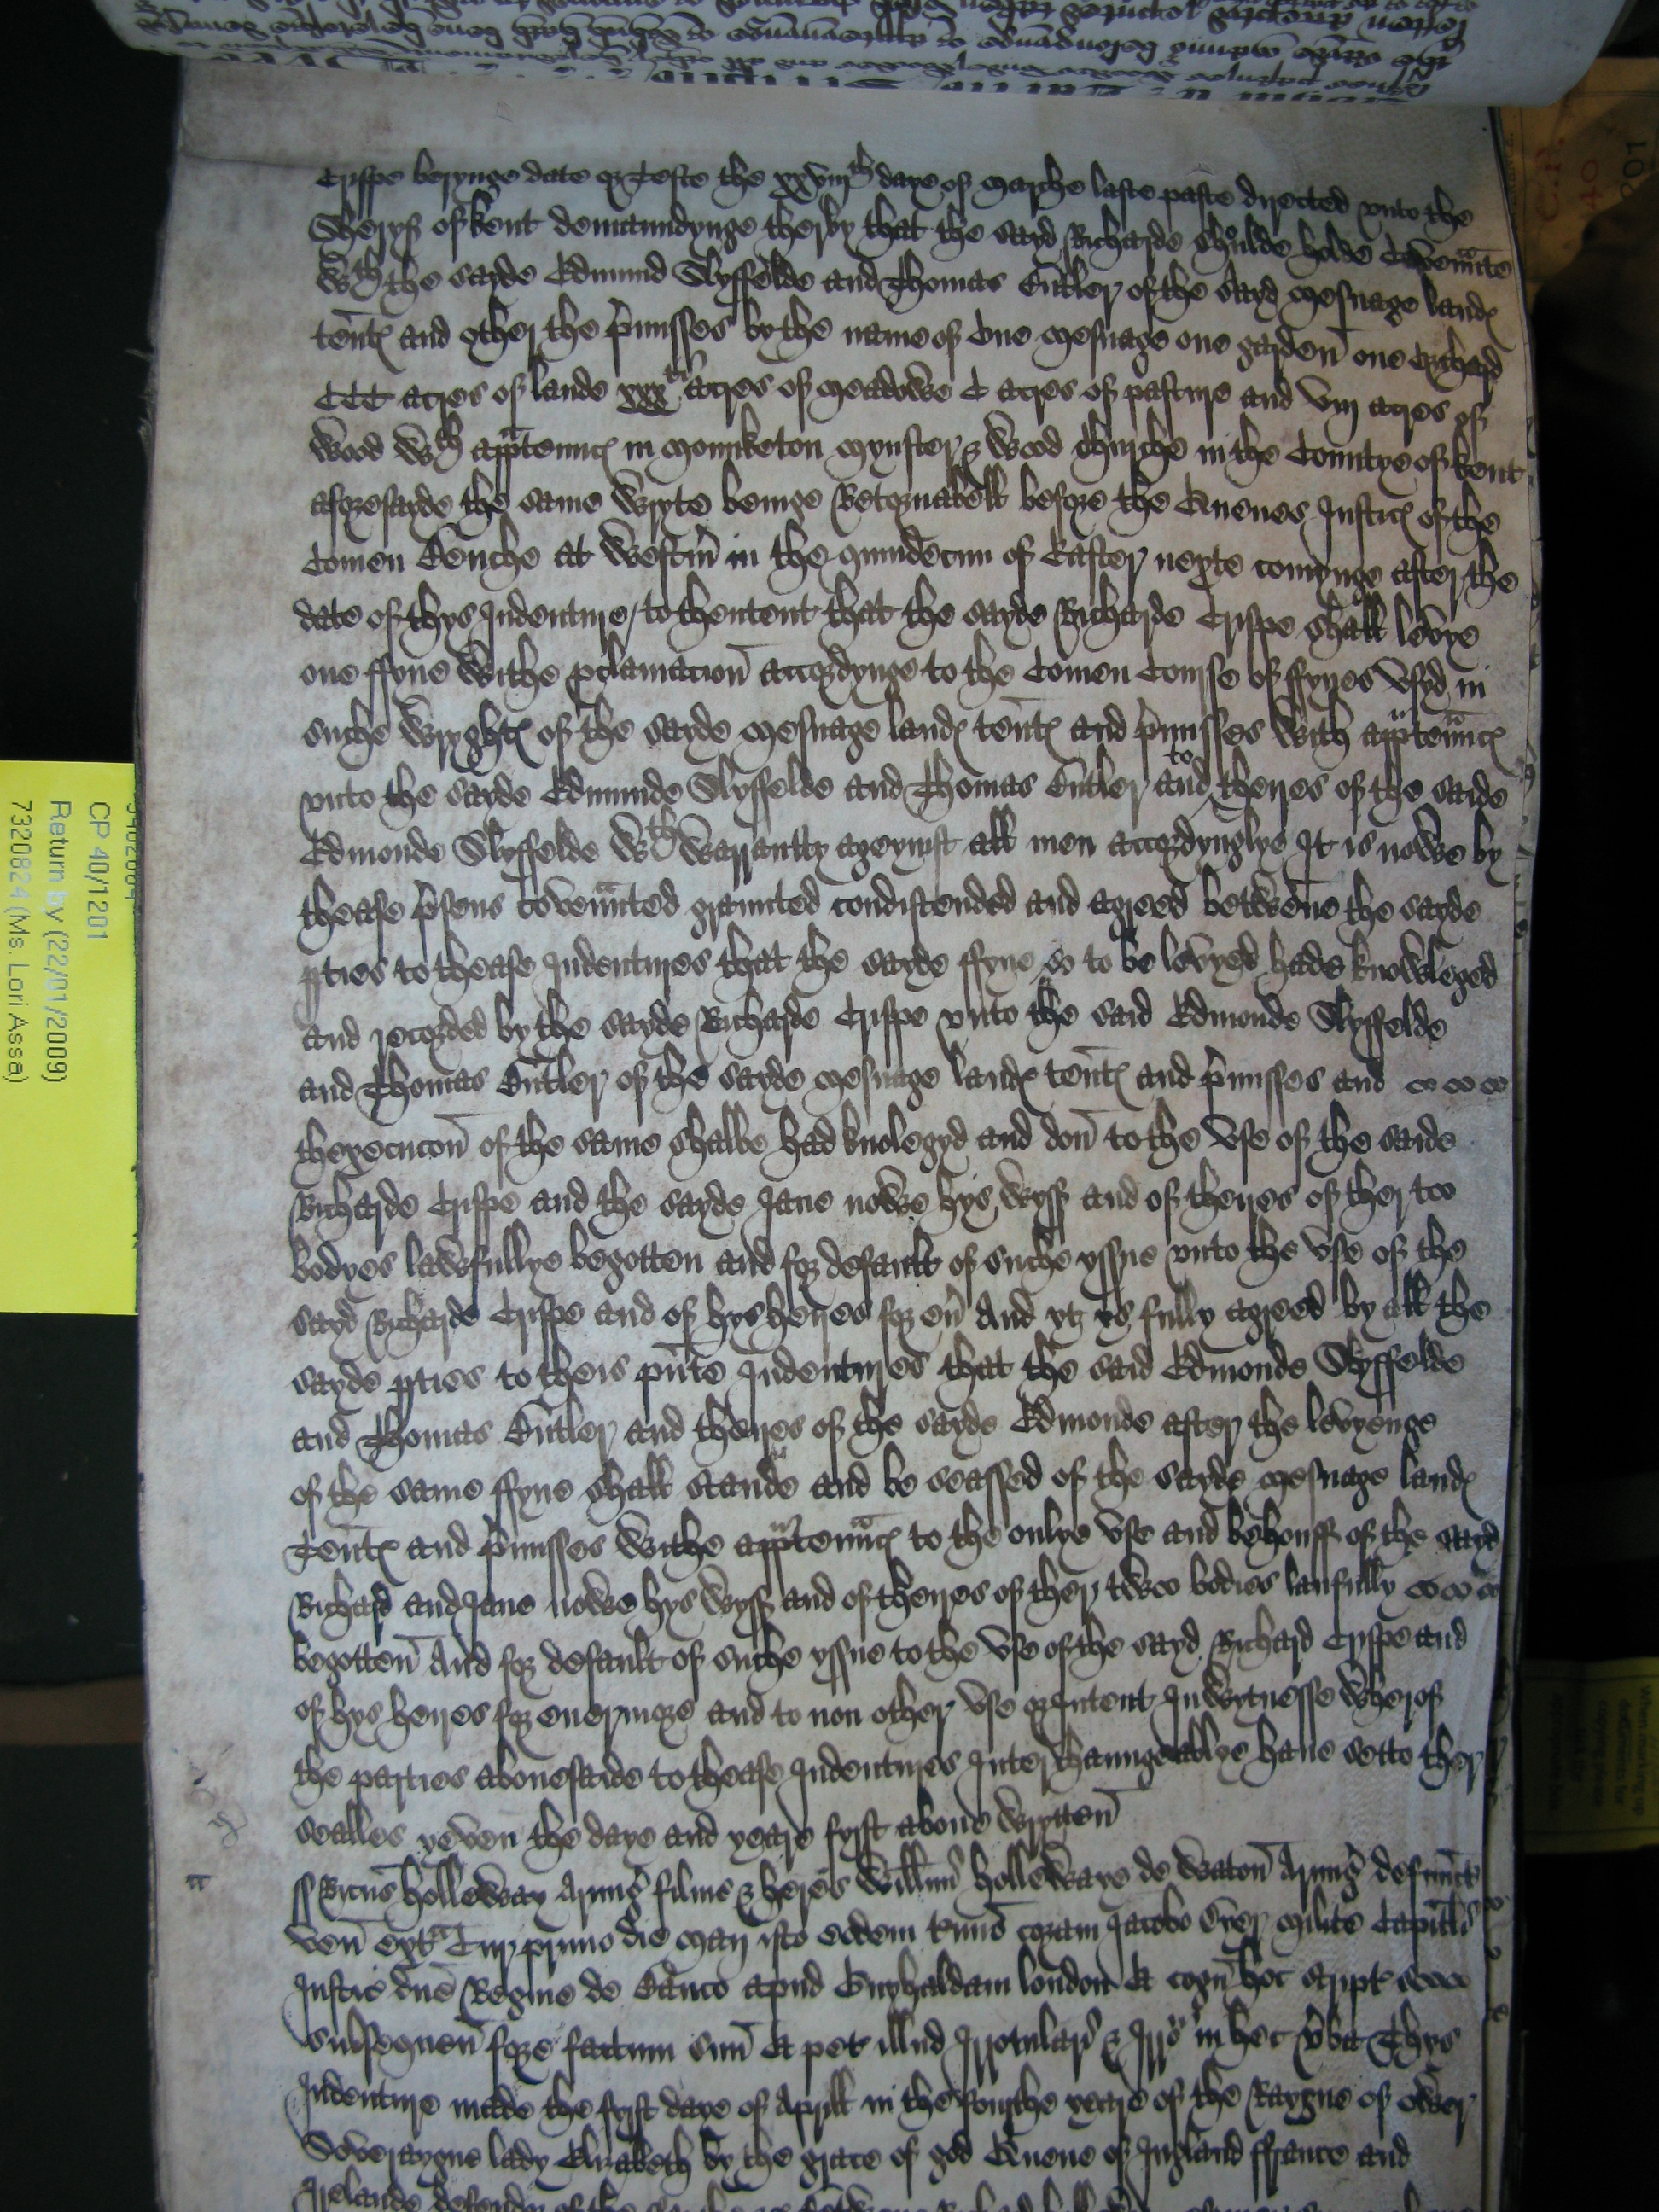 Crispe berynge date or Teste the xxviijth daye of Marche laste paste directed vnto the
Sheryf of kent demaundynge therby that the sayd Richarde shulde holde Covenñte
wth the sayde Edmund Slyffelde and Thomas Cutler of the sayd mesuage land
tent and other the pmisses by the name of one mesuage one garden one orchard
CCC acres of lande xxxti acres of meadowe C acres of pasture and viij acres of
wood wth apptennc in Monnketon Mynster & wood churche in the Countye of kent
aforesayde the same wryte beinge Retornabell before the Quenes Justic of the
Comen Benche at westm in the quindecim of Easter nexte comynge after the
date of thys Indenture / to thentent that the sayde Richarde Crispe shall levye
one ffyne withe pclamacion accordynge to the Comen Course of ffynes vsyd in
suche wryght of the sayde mesuage land tent and pmisses with apptennc
vnto the sayde Edmunde Slyffelde and Thomas Cutler and to theires of the saide
Edmonde Slyffelde wth warrantty ageynst all men accordynglye It is nowe by
thease psens covennted graunted condistended and agreed betwene the sayde
pties to thease Indentures that the sayde ffyne so to be levyed hade knowleged
and recorded by the sayde Richarde Crispe vnto the said Edmonde Slyffelde
and Thomas Cutler of the sayde mesuage land tent and pmisses and
thexecucon of the same shalbe had knolegyd and don to the vse of the saide
Richarde Crispe and the sayde Jane nowe hys wyff and of theires of ther too
bodyes lawfullye begotten and for defaulte of suche yssue vnto the vse of the
sayd Richarde Crispe and of hys heires for eu And yt ys fully agreed by all the
sayde pties to theis pnte Indentures that the said Edmonde Slyffelde
and Thomas Cutler and theires of the sayde Edmonde after the levyenge
of the same ffyne shall stande and be seassed of the sayde mesuage land
Tent and pmisses withe apptennc to the onlye vse and behouff of the sayd
Richard and Jane nowe hys wyff and of theires of ther twoo bodies laufully
begotten And for default of suche yssue to the vse of the sayd Richard Crispe and
of hys heires for euermore and to non other vse or Intent In wytnesse wherof
the parties abouesaide to thease Indentures Interchaungeablye haue setto ther
sealles yeven the daye and yeare fyrst aboue wrytten
ss Ricus Holleway Armig filius & heres Willmi Hollewaye de Waton Armig defunct
ven ext Cur primo die Maij isto eodem Tmio coram Jacobo Dyer milite Capitli
Justic dne Regine de Banco apud Guyhaldam london Et cogn hoc script
subsequen fore factum suu Et pet illud Irrotulari & Irro in hec vba Thys
Indenture made the fyrst daye of Aprill in the fourthe yeare of the Raygne of ower
Soveraygne lady Elizabeth by the grace of god Quene of Ingland ffrance and
Irelande defender of the
CP 40/1201
Return by (22/01/2009)
7320824 (Ms. Lori Assa)